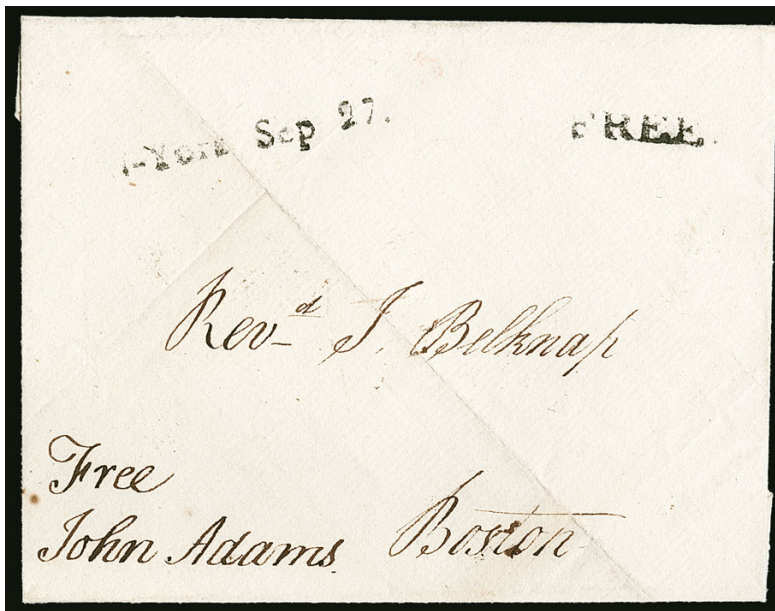 -York Sep 27. FREE.
Rev^d J. Belknap
Free
John Adams Boston